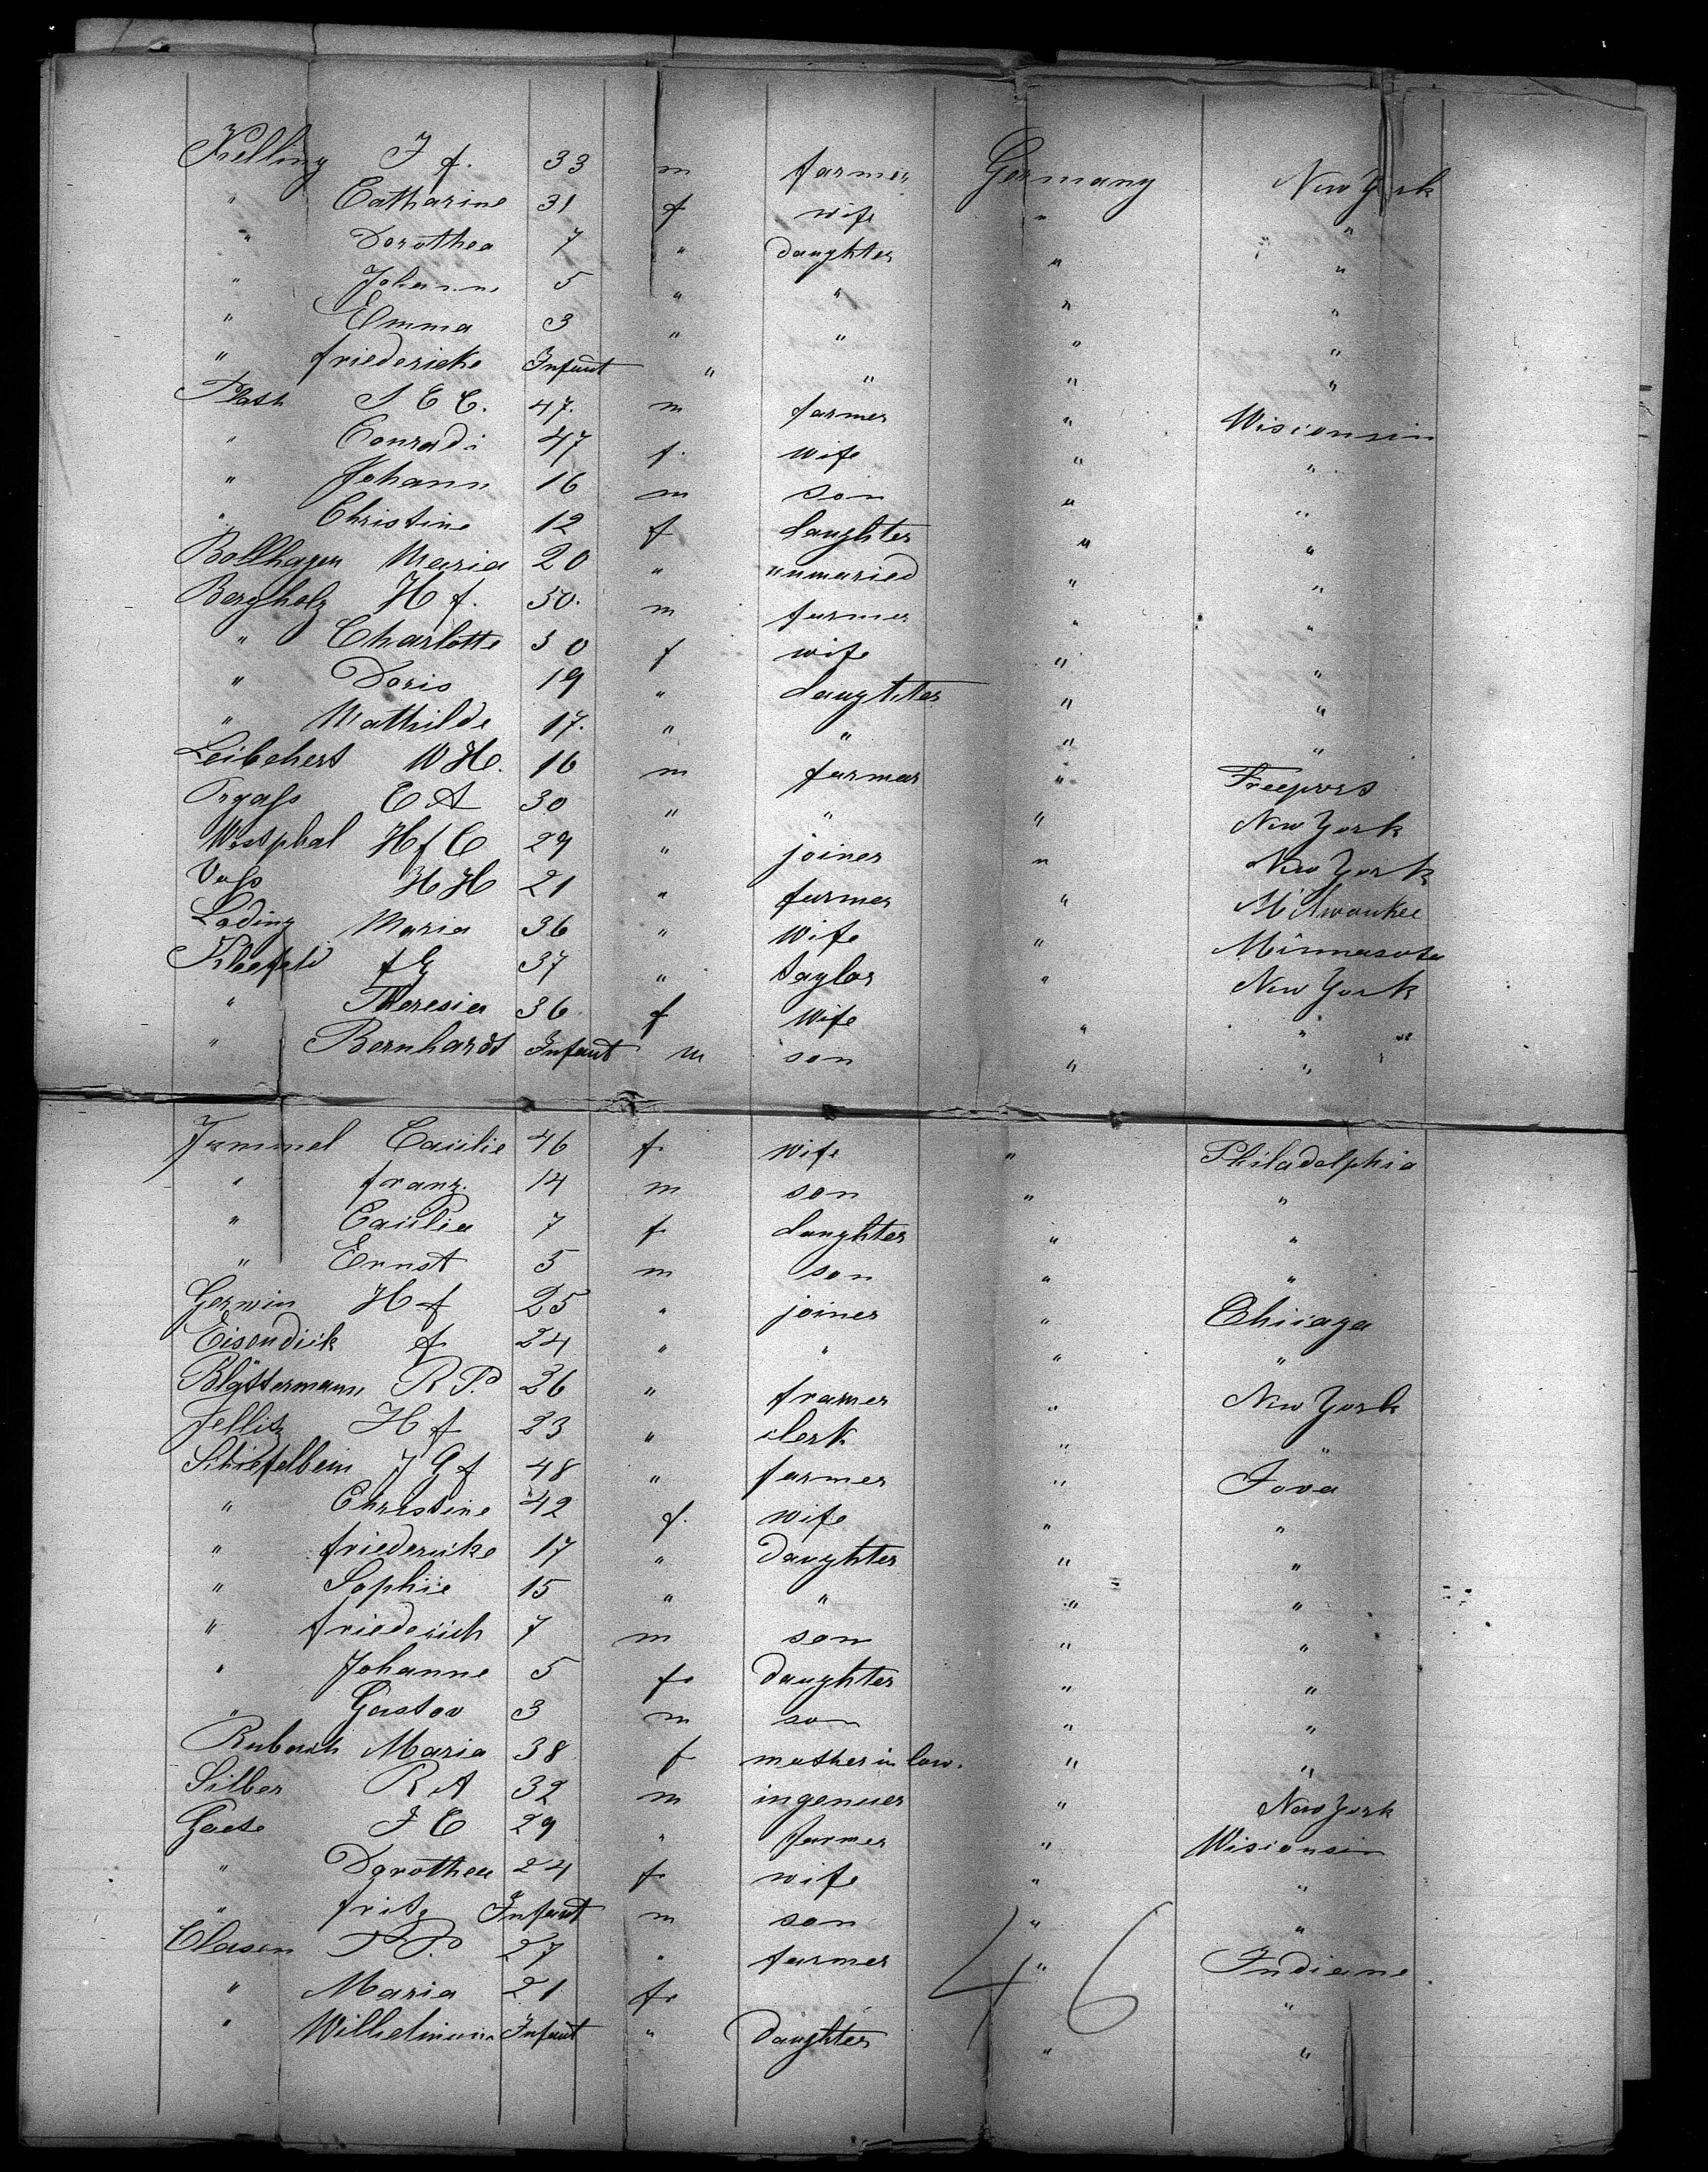 Kelling J f. 33 m farmer Germany New York
" Catharine 31 f wife " "
" Dorothea 7 " daughter " "
" Johanne 5 " " " "
" Emma 3 " " " "
" friedericke Infant " " " "
Plath J E C. 47. m farmer " Wisconsin
" Conradi 47 f. wife " "
" Johann 16 m son " "
" Christine 12 f daughter " "
Bollhagen Maria 20 " unmaried " "
Bergholz H f. 50. m farmer " "
" Charlotte 50 f wife " "
" Doris 19 " daugthter " "
" Mathilde 17. " " " "
Leibehert W H. 16 m farmer " Freepors
C A 30 " " " New York
Westphal H f C 29 " joiner " New York
Vass H H 21 " farmer " Milwaukee
Lading Maria 36 " wife " Minnasota
Kleefeld f G 37 " taylor " New York
" Theresia 36 f wife " " "
" Bernhardt Infant m son " " "
Jummel Cacilie 46 f. wife " Philadelphia
" franz. 14 m son " "
" Cacilia 7 f. daughter " "
" Ernst 5 m son " "
Gerwin H f 25 " joiner " Chicago
Eisendick f 24 " " " "
Blättermann R P. 26 " framer " New York
Jellitz H f 23 " clerk " "
Schiefelbein J G f 48 " farmer " Iova
" Christine 42 f. wife " "
" friedericke 17 " daughter " "
" Sophie 15 " " " "
" friederich 7 m son " "
" Johanne 5 f. daughter " "
" Gustav 3 m son " "
Maria 38 f mother in law. " "
Silber R A 32 m ingenuer " New York
Gaete J C 29 " farmer " Wisconsin
" Dorothea 24 f. wife " "
" fritz Infant m son " "
Clasen P P. 27 " farmer " Indiane.
" Maria 21 f. " "
" Wilhelmine Infant " daughter " "
46